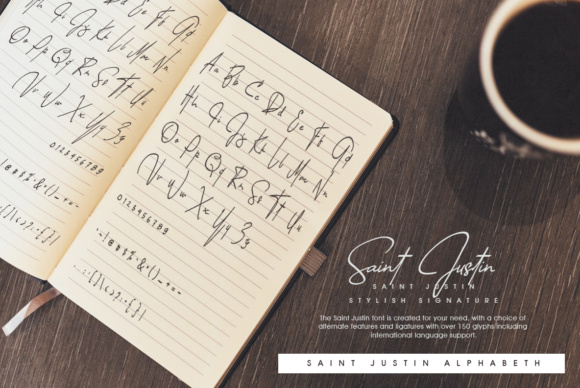 Hh Ii Jj Kk Ll Mm Nn
Oo Pp Qq Rr Ss Tt Uu
Vv Ww Xx Yy Zz
0123456789
Aa Bb Cc Dd Ee Ff Gg
Hh Ii Jj Kk Ll Mm Nn
Oo Pp Qq Rr Ss Tt Uu
Vv Ww Xx Yy Zz
0123456789
Saint Justin
SAINT JUSTIN
STYLISH SIGNATURE
The Saint Justin font is created for your need, with a choice of
alternate features and ligatures with over 150 glyphs including
international language support.
SAINT JUSTIN ALPHABETH